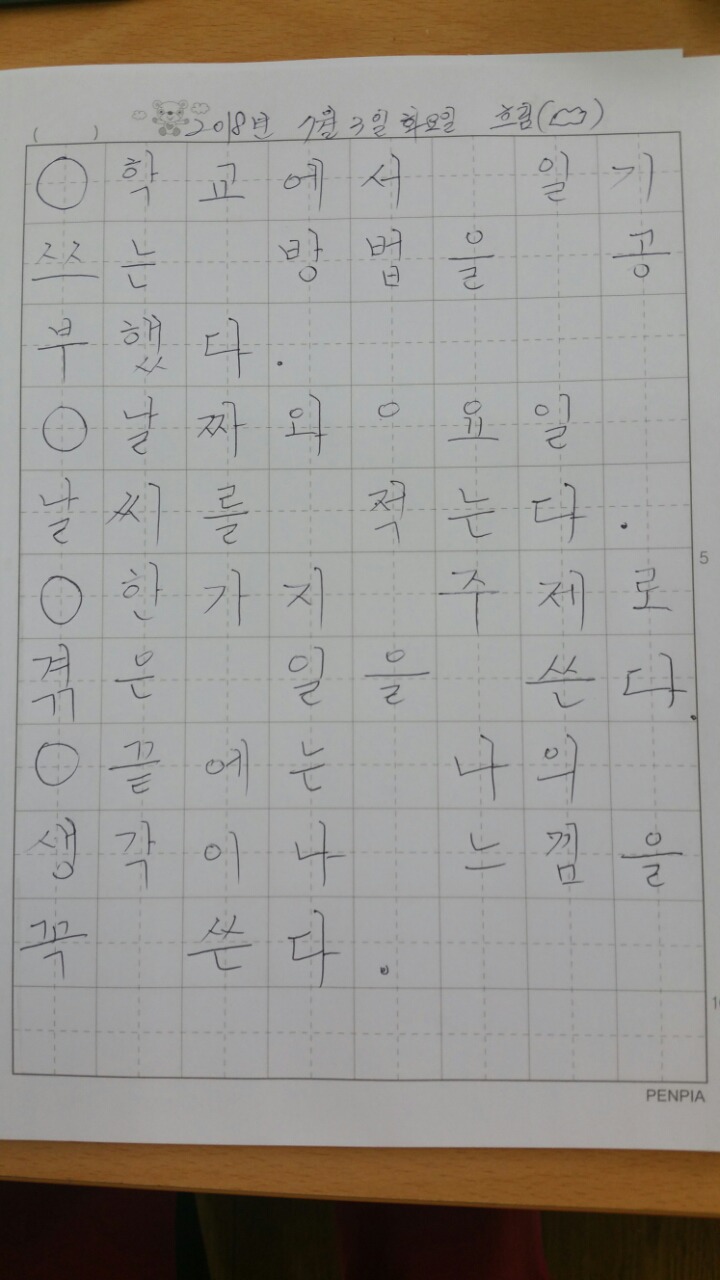 ( ) 2018년 7월 3일 화요일 흐림( )
○학교에서 일기
쯔는 방법을 공
부했다.
○날짜와으요일
날씨를 적는다.
○한가지 주제로
겪은 일을 쓴다.
○끝에는 나의
생각이나 느낌을
꼭 쓴다.
5
PENPIA